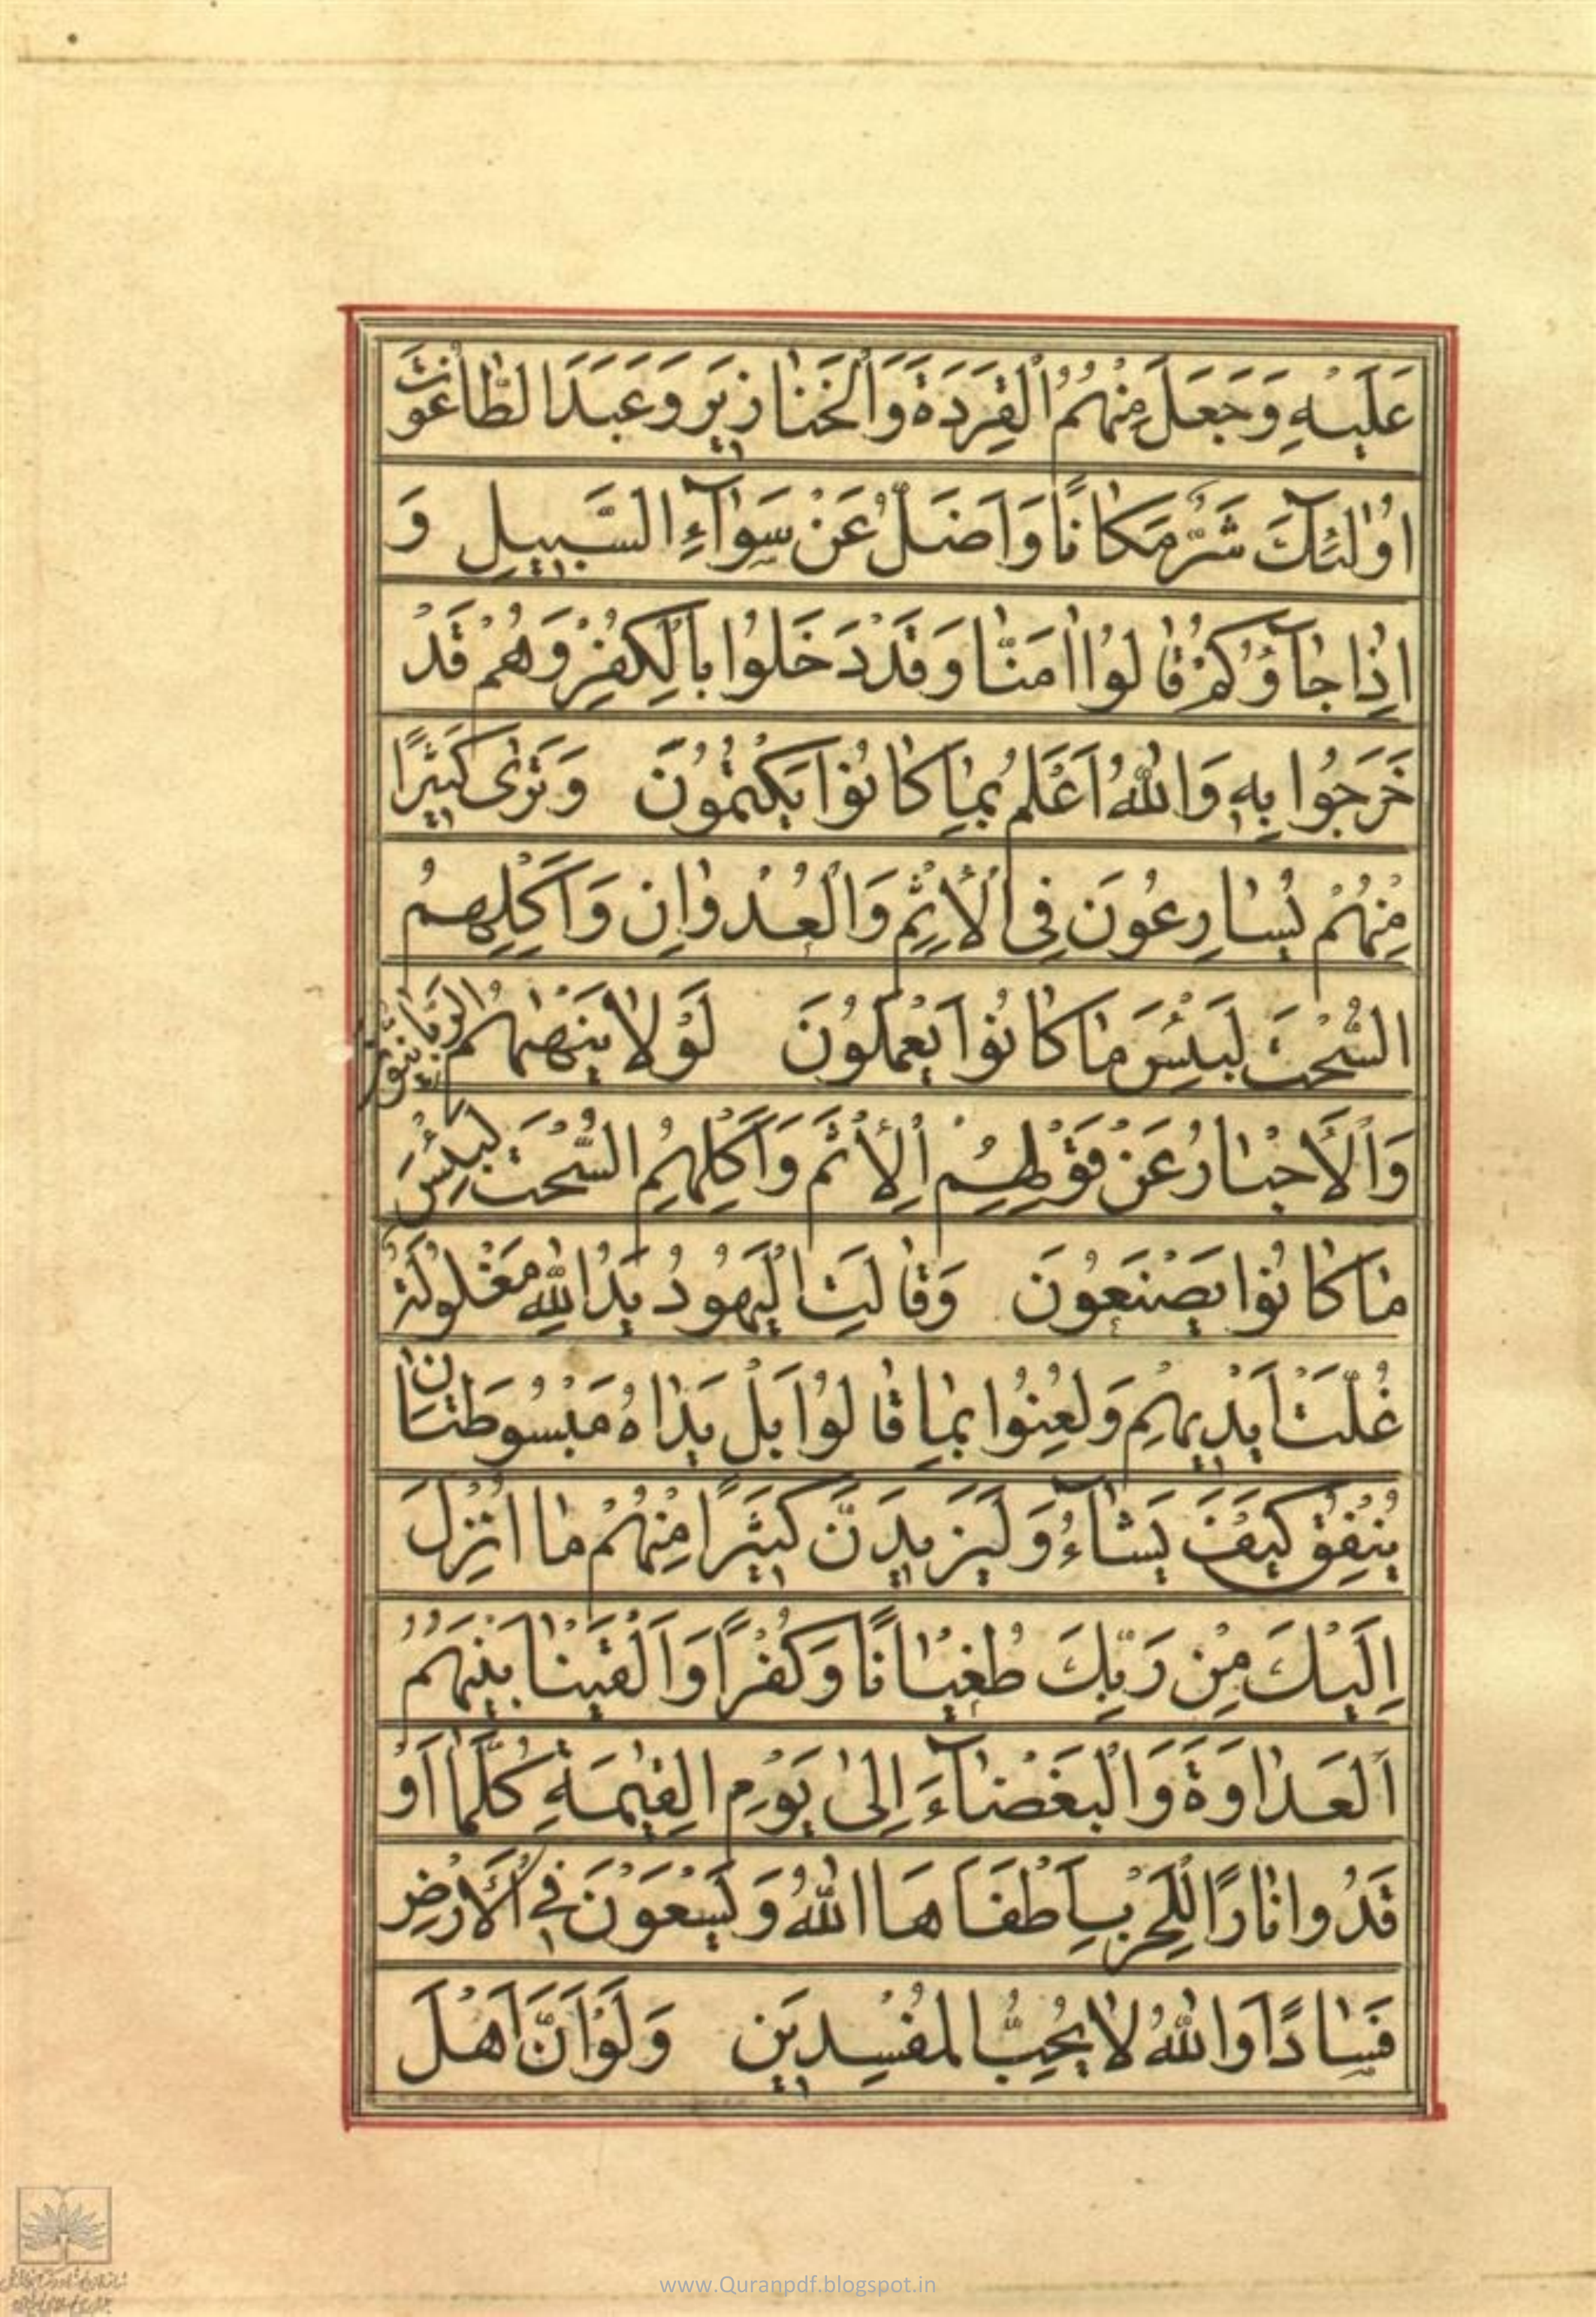 عَلَيْهِ وَجَعَلَ مِنْهُمُ الْقِرَدَةَ وَالْخَنَازِيرَ وَعَبَدَ الطَّاغُوتَ
اُولٰئِكَ شَرٌّ مَكَانًا وَاَضَلُّ عَنْ سَوَآءِ السَّبِيلِ وَ
اِذَا جَآؤُكُمْ قَالُوا اٰمَنَّا وَقَدْ دَخَلُوا بِالْكُفْرِ وَهُمْ قَدْ
خَرَجُوا بِهِ وَاللّٰهُ اَعْلَمُ بِمَا كَانُوا يَكْتُمُونَ وَتَرٰى كَثِيرًا
مِنْهُمْ يُسَارِعُونَ فِي الْاِثْمِ وَالْعُدْوَانِ وَاَكْلِهِمُ
السُّحْتَ لَبِئْسَ مَا كَانُوا يَعْمَلُونَ لَوْلَا يَنْهٰهُمُ الرَّبَّانِيُّونَ
وَالْاَحْبَارُ عَنْ قَوْلِهِمُ الْاِثْمَ وَاَكْلِهِمُ السُّحْتَ لَبِئْسَ
مَا كَانُوا يَصْنَعُونَ وَقَالَتِ الْيَهُودُ يَدُ اللّٰهِ مَغْلُولَةٌ
غُلَّتْ اَيْدِيهِمْ وَلُعِنُوا بِمَا قَالُوا بَلْ يَدَاهُ مَبْسُوطَتَانِ
يُنْفِقُ كَيْفَ يَشَآءُ وَلَيَزِيدَنَّ كَثِيرًا مِنْهُمْ مَا اُنْزِلَ
اِلَيْكَ مِنْ رَبِّكَ طُغْيَانًا وَكُفْرًا وَاَلْقَيْنَا بَيْنَهُمُ
الْعَدَاوَةَ وَالْبَغْضَآءَ اِلٰى يَوْمِ الْقِيٰمَةِ كُلَّمَا اَوْ
قَدُوا نَارًا لِلْحَرْبِ اَطْفَاَهَا اللّٰهُ وَيَسْعَوْنَ فِي الْاَرْضِ
فَسَادًا وَاللّٰهُ لَا يُحِبُّ الْمُفْسِدِينَ وَلَوْ اَنَّ اَهْلَ
www.Quranpdf.blogspot.in